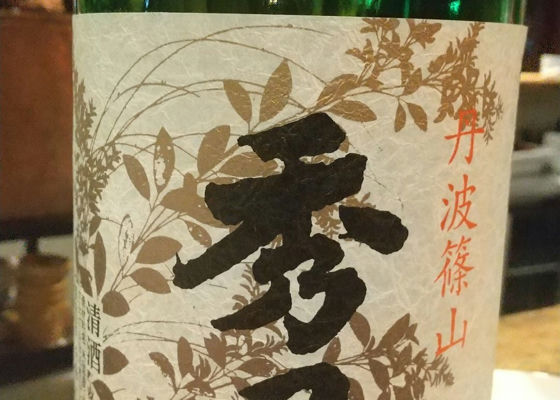 丹波篠山
秀
清酒